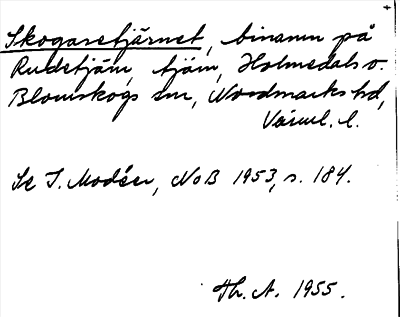 Skogasetjärnet, binamn på
Rudetjärn, tjärn, Holmedals o.
Blomskogs snr, Nordmarks hd,
Värml. l.
Se I. Modéer, NoB 1953, s. 184.
Th. A. 1955.